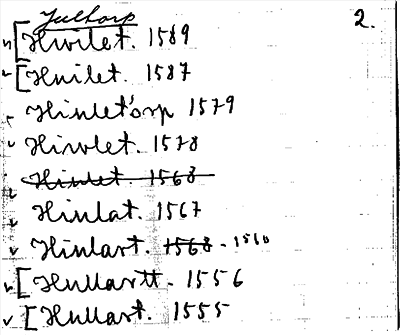 Jultorp 2.
[Hwilet. 1589
[Hwilet. 1587
Hinlet'orp 1579
Hivlet. 1578
Hinlet. 1568
Hinlat. 1567
Hinlart. 1568 - 1560
[Hullartt. 1556
[Hullart. 1555